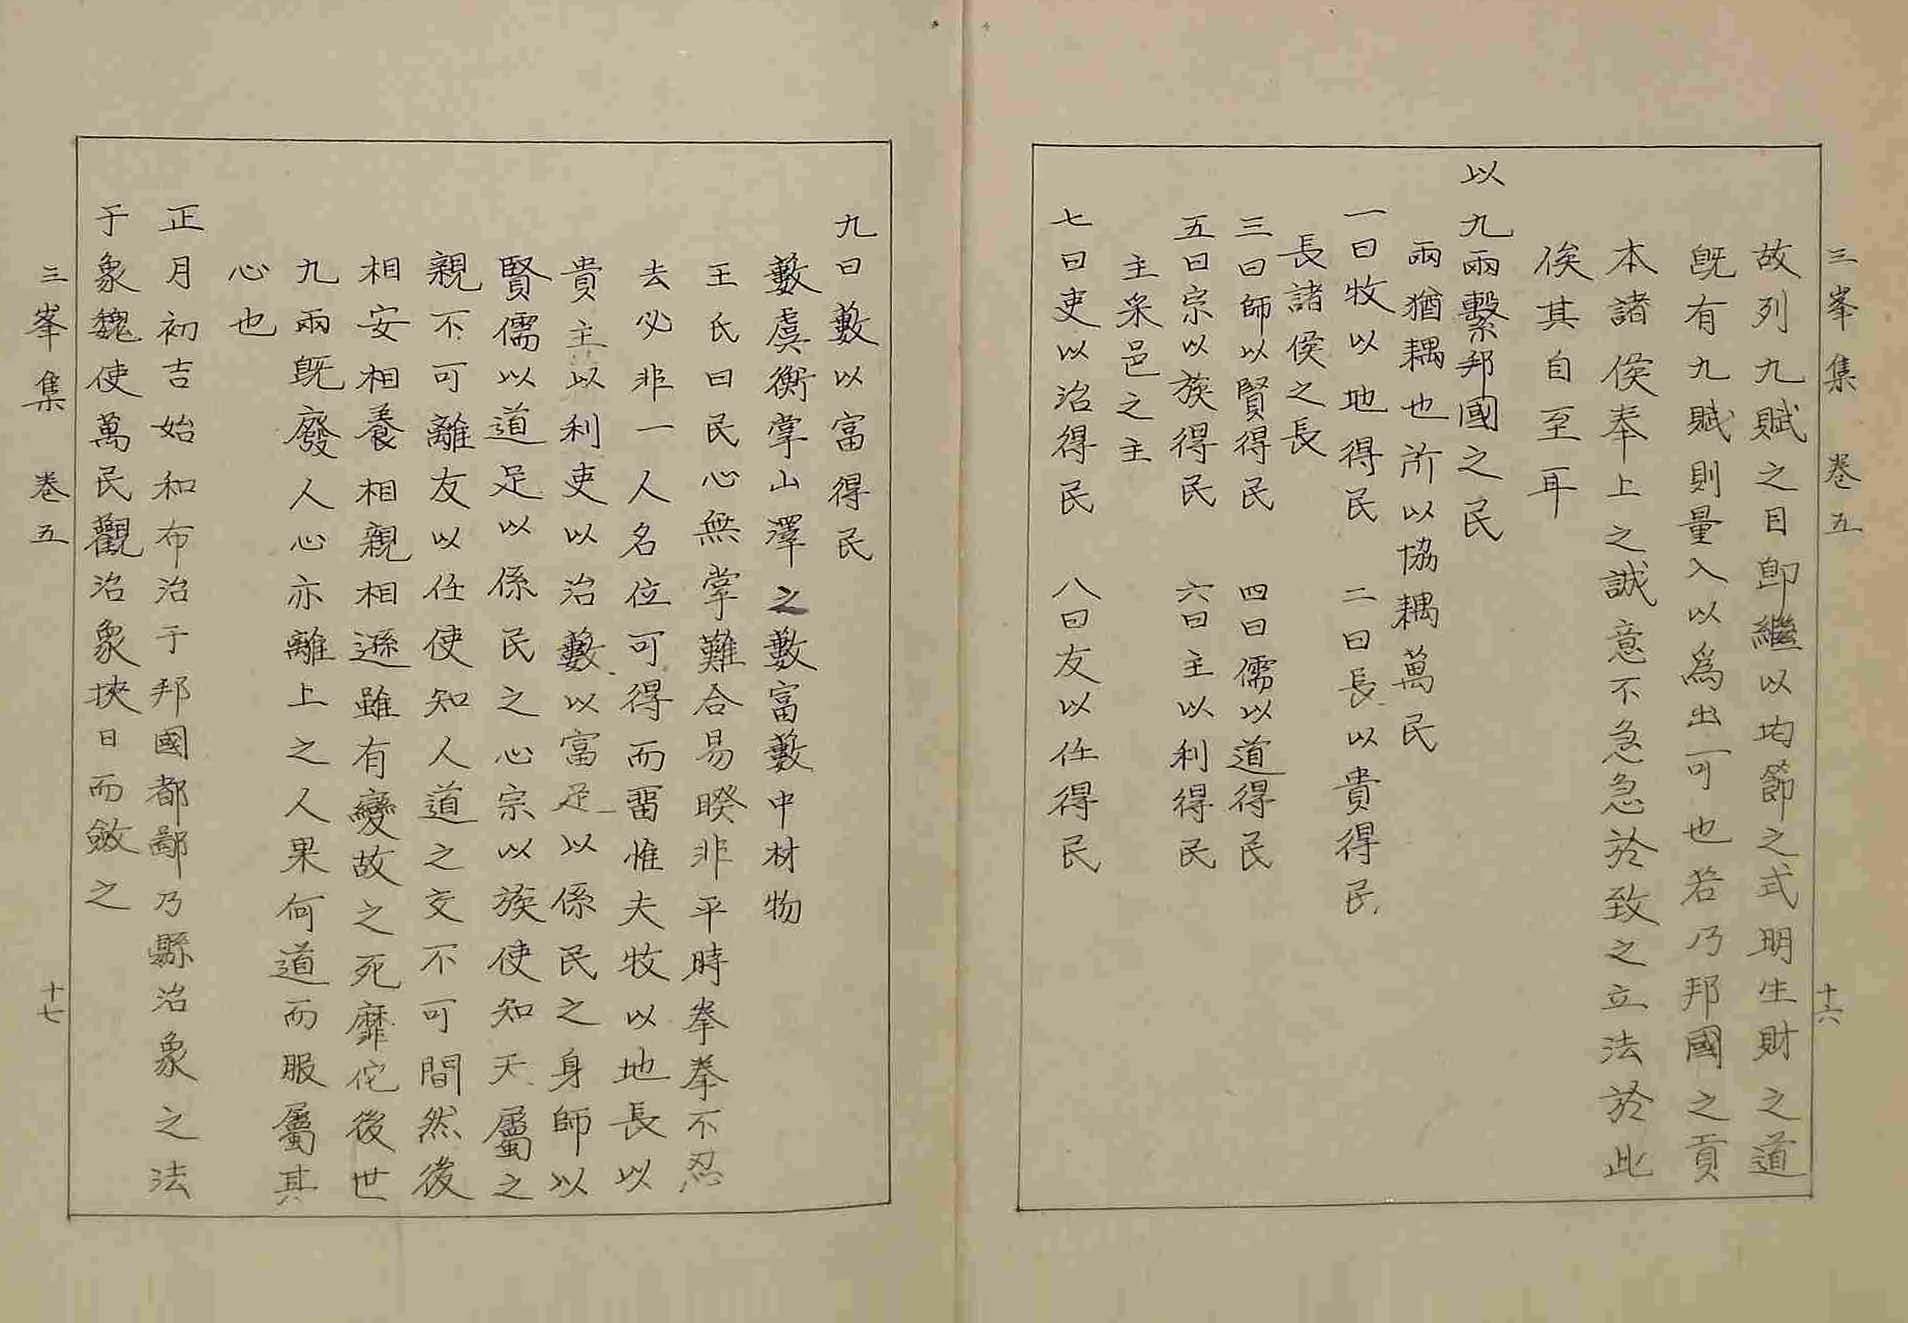 三峯集 卷五 十六
故列九賦之目卽繼以均節之式明生財之道
旣有九賦則量入以爲出可也若乃邦國之貢
本諸侯奉上之誠意不急急於致之立法於此
俟其自至耳
以九兩繫邦國之民
兩猶耦也所以協耦萬民
一曰牧以地得民 二曰長以貴得民
長諸侯之長
三曰師以賢得民 四曰儒以道得民
五曰宗以族得民 六曰主以利得民
主采邑之主
七曰吏以治得民 八曰友以任得民
九曰藪以富得民
藪虞衡掌山澤之藪富藪中材物
王氏曰民心無掌難合易睽非平時拳拳不忍
去必非一人名位可得而留惟夫牧以地長以
貴主以利吏以治藪以富足以係民之身師以
賢儒以道足以係民之心宗以族使知天屬之
親不可離友以任使知人道之交不可間然後
相安相養相親相遜雖有變故之死靡佗後世
九兩旣廢人心亦離上之人果何道而服屬其
心也
正月初吉始和布治于邦國都鄙乃縣治象之法
于象魏使萬民觀治象挾日而斂之
三峯集 卷五 十七